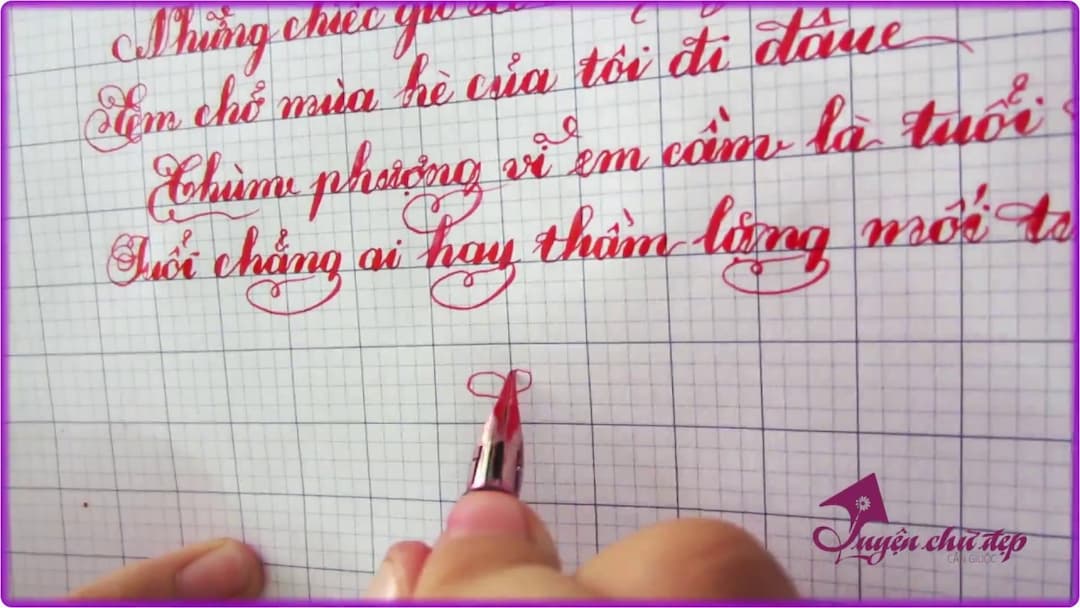 Những chiếc
Kem chở mùa hè của tôi đi đâu
Chùm phượng vĩ em cầm là tuổi
Tuổi chẳng ai hay thầm lặng mối
Luyện chữ đẹp
CẦN GIUỘC